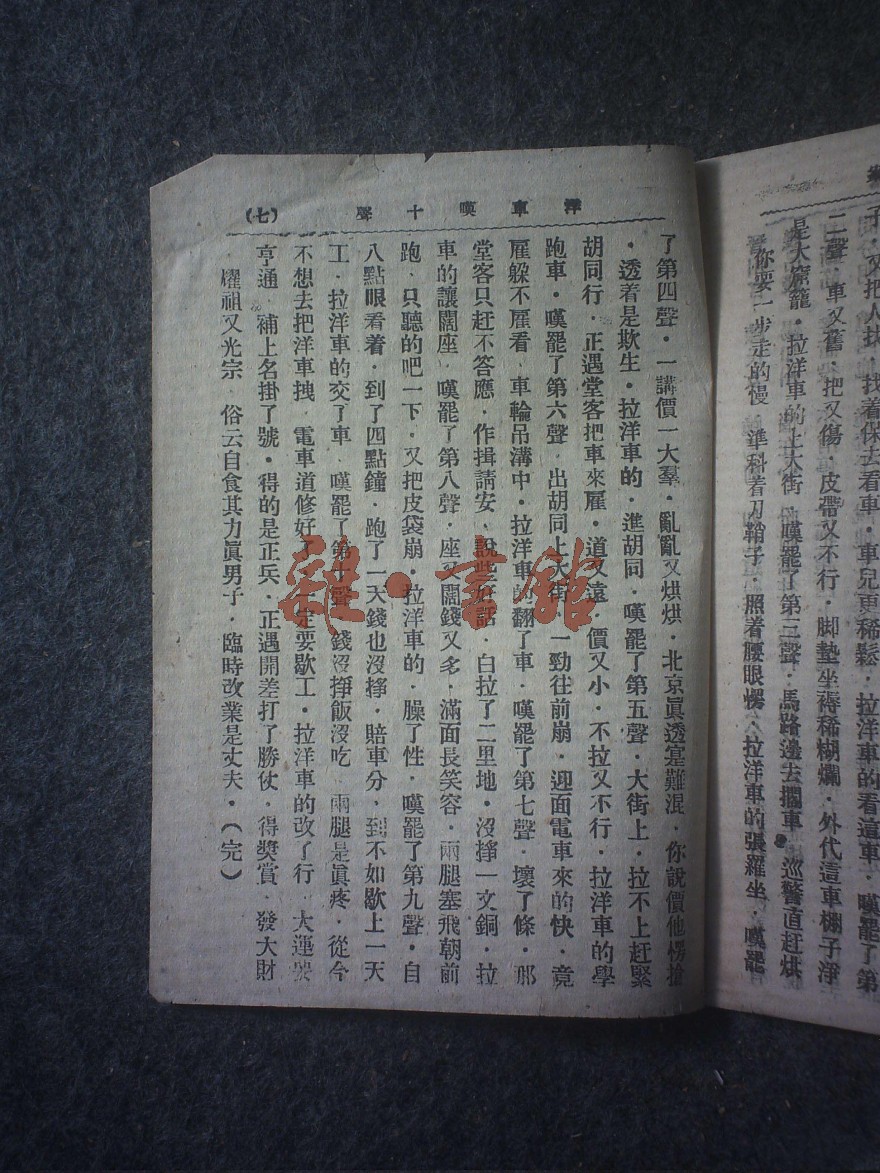 子・又把人找・找着保去看車・車兒更稀鬆・拉洋車的看這車・嘆罷了第
二聲・車又舊・把又傷・皮帶又不行・脚墊坐褥稀糊爛・外代這車棚子淨
是大窟籠・拉洋車的上大街・嘆罷了第三聲・馬路邊去擱車・巡警直赶烘
你要一步走的慢・準科着刀鞘子・照着腰眼愣・拉洋車的張羅坐・嘆罷
洋車嘆十聲
(七)
了第四聲・一講價一大羣・亂亂又烘烘・北京眞透塞難混・你說價他愣搶
・透着是欺生・拉洋車的・進胡同・嘆罷了第五聲・大街上・拉不上赶緊
胡同行・正遇堂客把車來雇・道又遠・價又小・不拉又不行・拉洋車的學
跑車・嘆罷了第六聲・出胡同上大街・一勁往前崩・迎面電車來的快・竟
雇躲不雇看・車輪吊溝中・拉洋車的翻了車・嘆罷了第七聲・壞了條・那
堂客只赶不答應・作揖請安・說些好話・白拉了二里地・沒掙一文銅・拉
車的讓闊座・嘆罷了第八聲・座又闊錢又多・滿面長笑容・兩腿塞飛朝前
跑・只聽的吧一下・又把皮袋崩・拉洋車的・臊了性・嘆罷了第九聲・自
八點眼看着・到了四點鐘・跑了一天錢也沒掙・賠車分・到不如歇上一天
工・拉洋車的交了車・嘆罷了第十聲・錢沒掙飯沒吃・兩腿是眞疼・從今
不想去把洋車拽・電車道修好了一定要歇工・拉洋車的改了行・大運
亨通・補上名掛了號・得的是正兵・正遇開差打了勝仗・得獎賞・發大財
・耀祖又光宗・俗云自食其力眞男子・臨時改業是丈夫・(完)
雜・書館